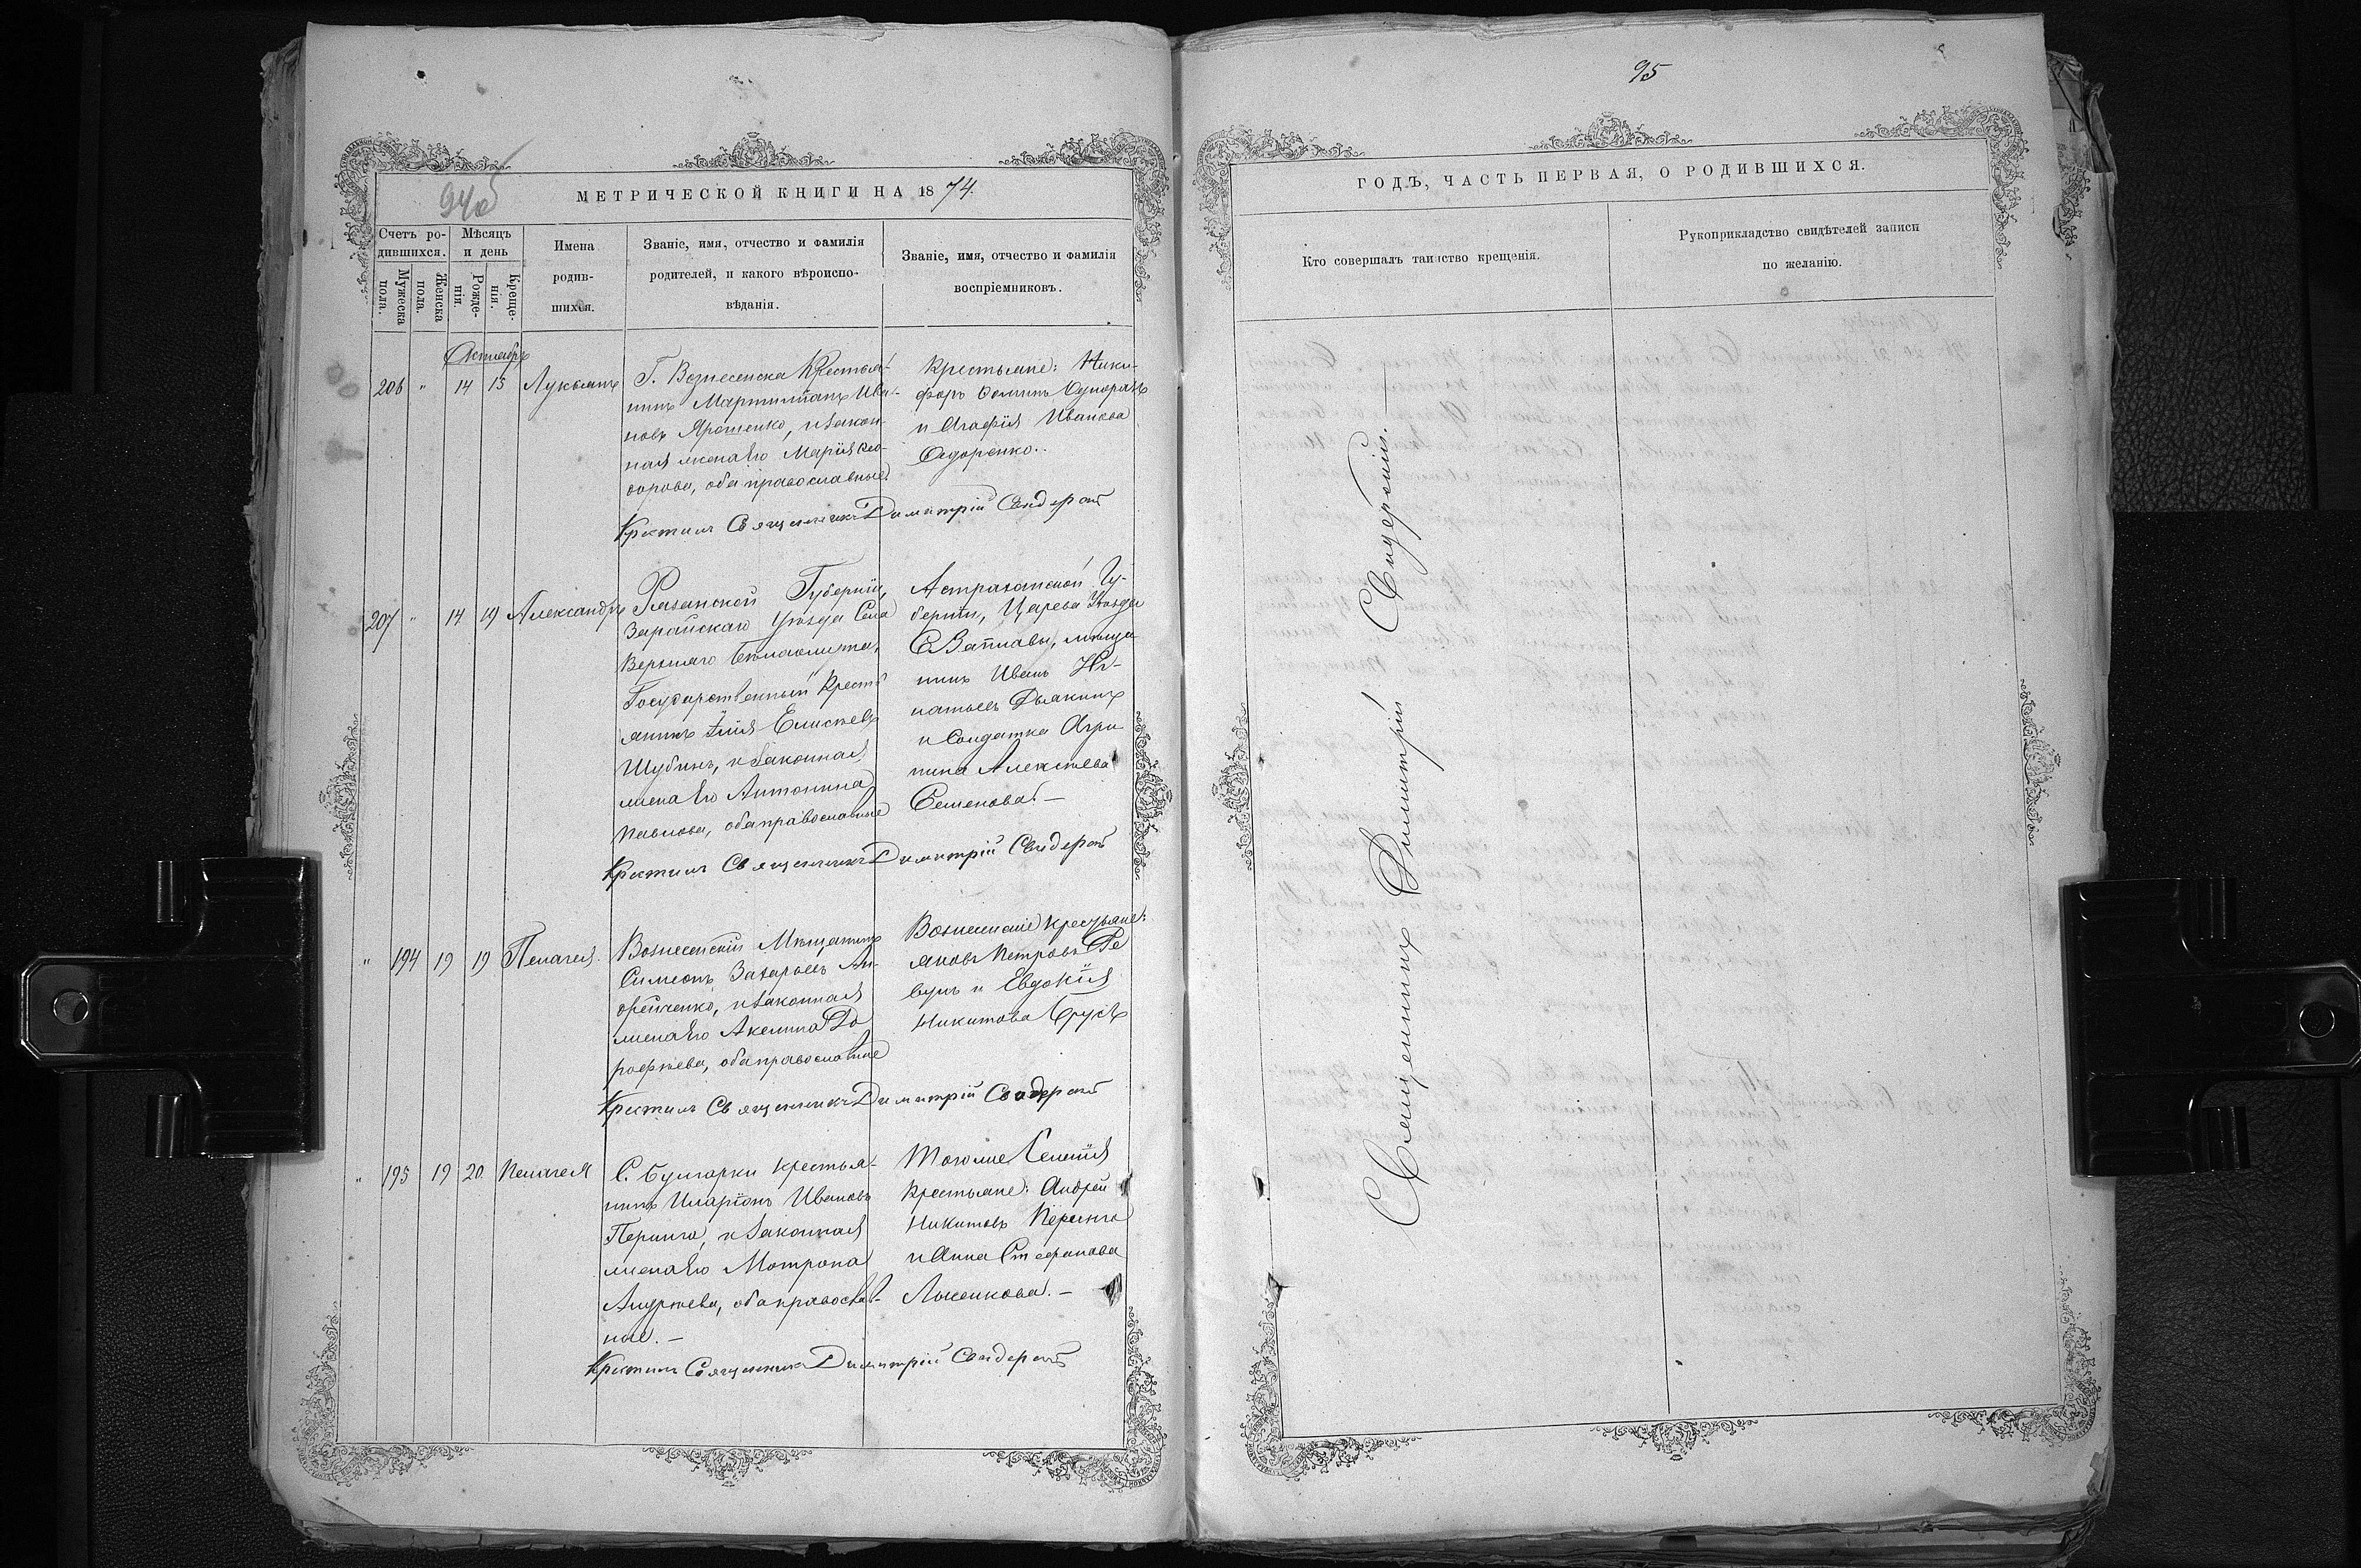 94об
МЕТРИЧЕСКОЙ КНИГИ НА 1874.
Счетъ ро-
дившихся.
Мѣсяцъ
и день
Мужеска
пола.
Женска
пола.
Рожде-
нія
Креще-
нія.
Имена
родив-
шихся.
Званіе, имя, отчество и фамилія
родителей, и какого вѣроиспо-
вѣданія.
Званіе, имя, отчество и фамилія
воспріемниковъ.
Октябрь
206 " 14 15 Лукьянъ
Г. Вознесенска Крестья-
нинъ Мартиніанъ Ива-
новъ Ярошенко, и закон-
ная жена его Марія Ѳео-
дорова, оба православные
Крестьяне: Ники-
форъ Ѳоминъ
и Агафія Иванова
Ѳедоренко.
Крестилъ Священникъ Димитрій Свидерскій
207 " 14 19 Александръ
Рязанской Губерніи,
Зарайскаго уѣзда Села
Верхняго Бѣлоомута,
Государственный Кресть
янинъ Илія Елисѣевъ
Шубинъ, и законная
жена его Антонина
Павлова, оба православные
Астраханской Гу-
берніи, Царева Уѣзда
С. Заплавы, мѣща
нинъ Иванъ Иг-
натьевъ Дьякинъ
и Солдатка Агри
пина Алексѣева
Семенова. —
Крестилъ Священникъ Димитрій Свидерскій
" 194 19 19 Пелагея.
Вознесенскій Мѣщанинъ
Симеонъ Захарьевъ Ан-
дрейченко, и законная
жена его Акелина До
роѳѣева, оба православные
Вознесенскіе крестьяне:
Яковъ Петровъ Ре
вунъ и Евдокія
Никитова Брусъ
Крестилъ Священникъ Димитрій Свидерскій
" 195 19 20 Пелагея
С. Булгарки крестья-
нинъ Иларіонъ Ивановъ
и законная
жена его Мотрона
Андреева, оба православ-
ные. —
Тогоже Селенія
Крестьяне: Андрей
Никитовъ
и Анна Стефанова
—
Крестилъ Священникъ Димитрій Свидерскій
95
ГОДЪ, ЧАСТЬ ПЕРВАЯ, О РОДИВШИХСЯ.
Кто совершалъ таинство крещенія.
Рукоприкладство свидѣтелей записи
по желанію.
Священникъ Димитрій Свидерскій.